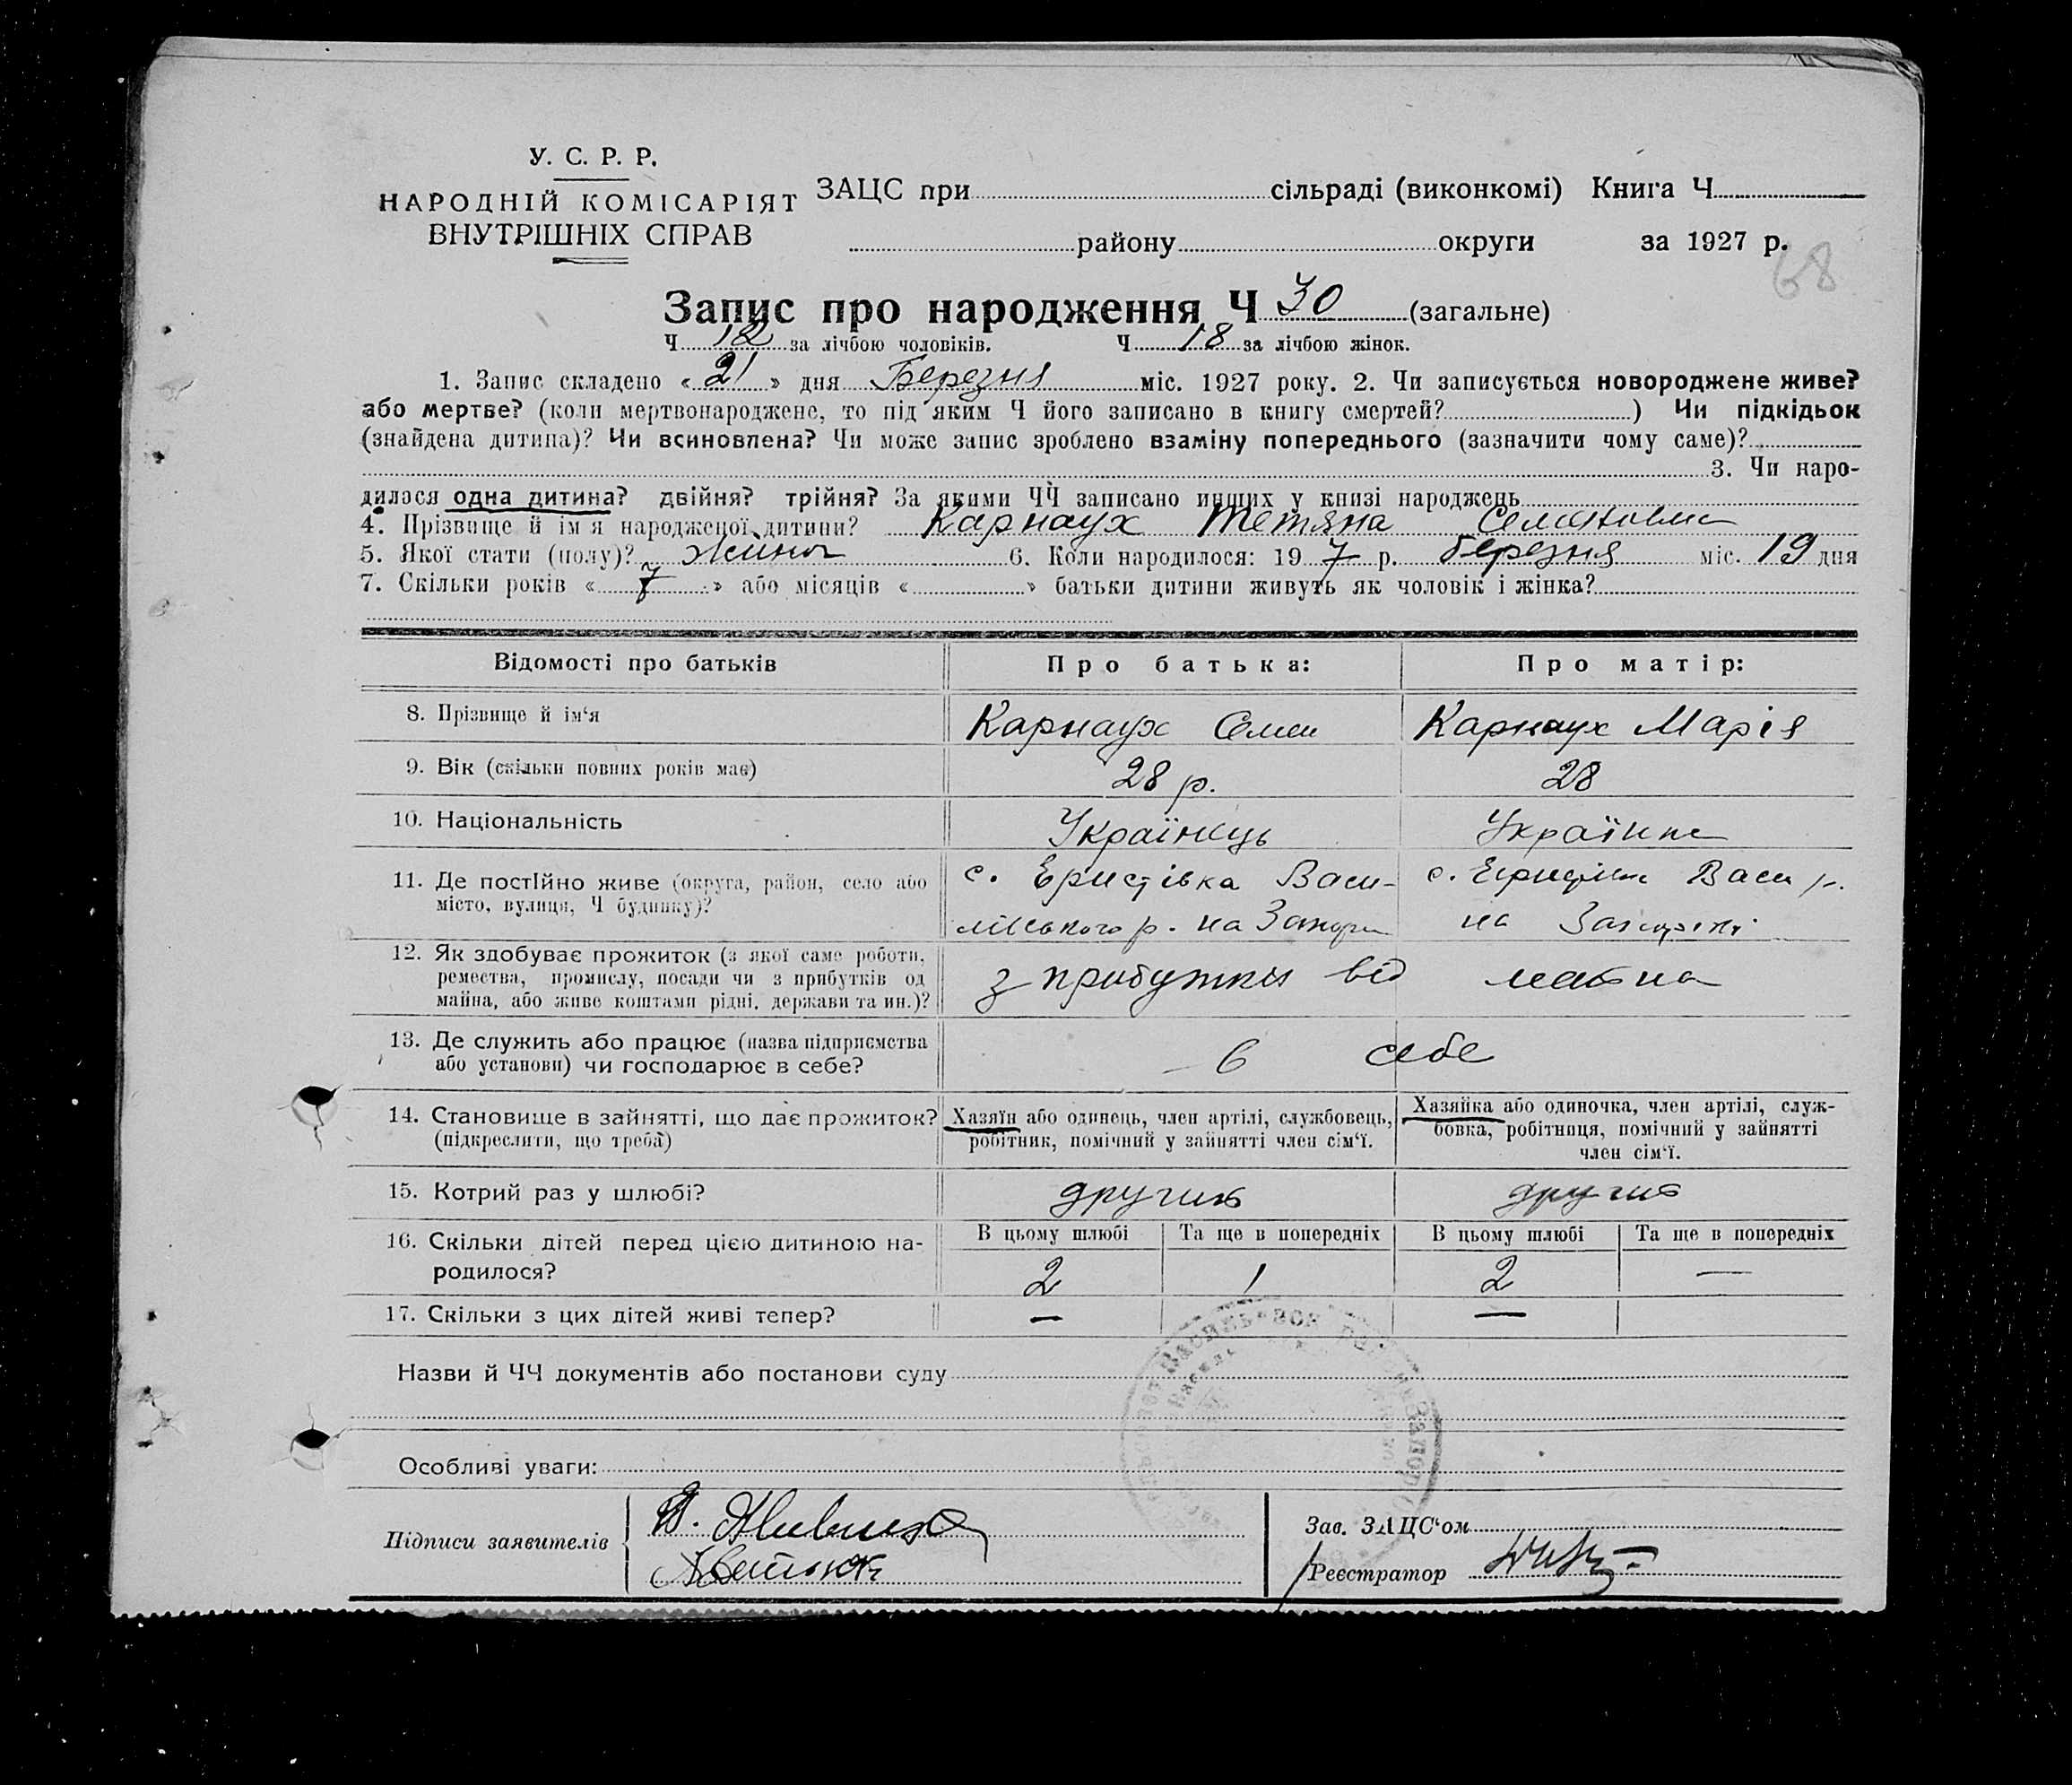 У. С. Р. Р.
НАРОДНІЙ КОМІСАРІЯТ
ВНУТРІШНІХ СПРАВ
ЗАЦС при сільраді (виконкомі) Книга Ч
району округи за 1927 р.
68
Запис про народження Ч 30 (загальне)
Ч 12 за лічбою чоловіків. Ч 18 за лічбою жінок.
1. Запис складено « 21 » дня Березня міс. 1927 року. 2. Чи записується новороджене живе?
або мертве? (коли мертвонароджене, то під яким Ч його записано в книгу смертей? ) Чи підкідьок
(знайдена дитина)? Чи всиновлена? Чи може запис зроблено взаміну попереднього (зазначити чому саме)?
3. Чи наро-
дилася одна дитина? двійня? трійня? За якими ЧЧ записано инших у книзі народжень
4. Прізвище й ім'я народженої дитини? Карнаух Тетяна Семеновна
5. Якої стати (полу)? Жіноч 6. Коли народилося: 19 7 р. березня міс. 19 дня
7. Скільки років « 7 » або місяців « » батьки дитини живуть як чоловік і жінка?
Відомості про батьків Про батька: Про матір:
8. Прізвище й ім‘я Карнаух Семен Карнаух Марія
9. Вік (скільки повних років має) 28 р. 28
10. Національність Українець Українка
11. Де постійно живе (округа, район, село або с. Еристівка Васи- с. Васи р.
місто, вулиця, Ч будинку)? лівського р. на Запор на
12. Як здобуває прожиток (з якої саме роботи,
ремества, промислу, посади чи з прибутків од з прибутків від майна
майна, або живе коштами рідні, держави та ин.)?
13. Де служить або працює (назва підприємства
або установи) чи господарює в себе? в себе
14. Становище в зайнятті, що дає прожиток? Хазяїн або одинець, член артілі, службовець, Хазяйка або одиночка, член артілі, служ-
(підкреслити, що треба) робітник, помічний у зайнятті член сім‘ї. бовка, робітниця, помічний у зайнятті
член сім‘ї.
15. Котрий раз у шлюбі? другий другий
16. Скільки дітей перед цією дитиною на- В цьому шлюбі Та ще в попередніх В цьому шлюбі Та ще в попередніх
родилося? 2 1 2 —
17. Скільки з цих дітей живі тепер? — —
Назви й ЧЧ документів або постанови суду
Особливі уваги:
Підписи заявителів
Зав. ЗАЦС‘ом
Реєстратор